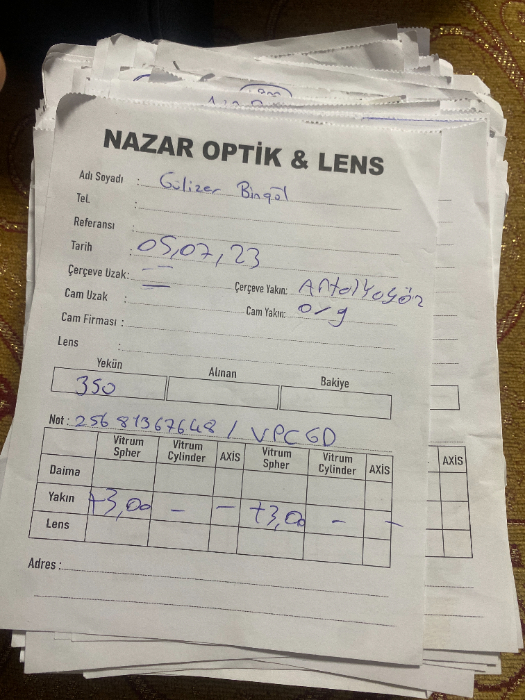 NAZAR OPTİK & LENS
Adı Soyadı : Gülizer Bingöl
Tel. :
Referansı :
Tarih : 05,07,23
Çerçeve Uzak: = Çerçeve Yakın: Antalyagöz
Cam Uzak : Cam Yakın: org
Cam Firması :
Lens :
Yekün Alınan Bakiye
350
Not : 25681367648 / VPCGD
Vitrum Spher Vitrum Cylinder AXİS Vitrum Spher Vitrum Cylinder AXİS
Daima
Yakın +3,00 - - +3,00 - -
Lens
Adres :
AXİS